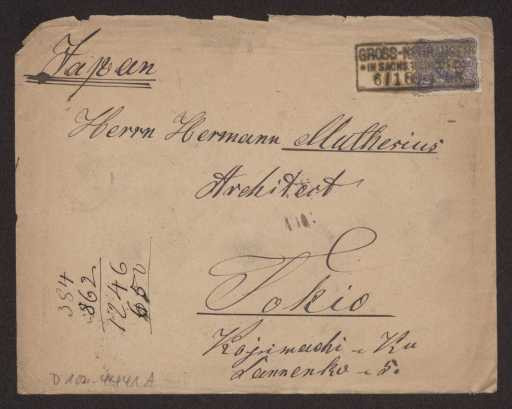 Japan
GROSS-NEUHAUSEN
* IN SACHS.
6/1
Herrn Hermann Mathesius
Architect
Tokio
Kojimachi - Ku
Sannenko - 5.
384
862
1246
650
D 102-4441 A